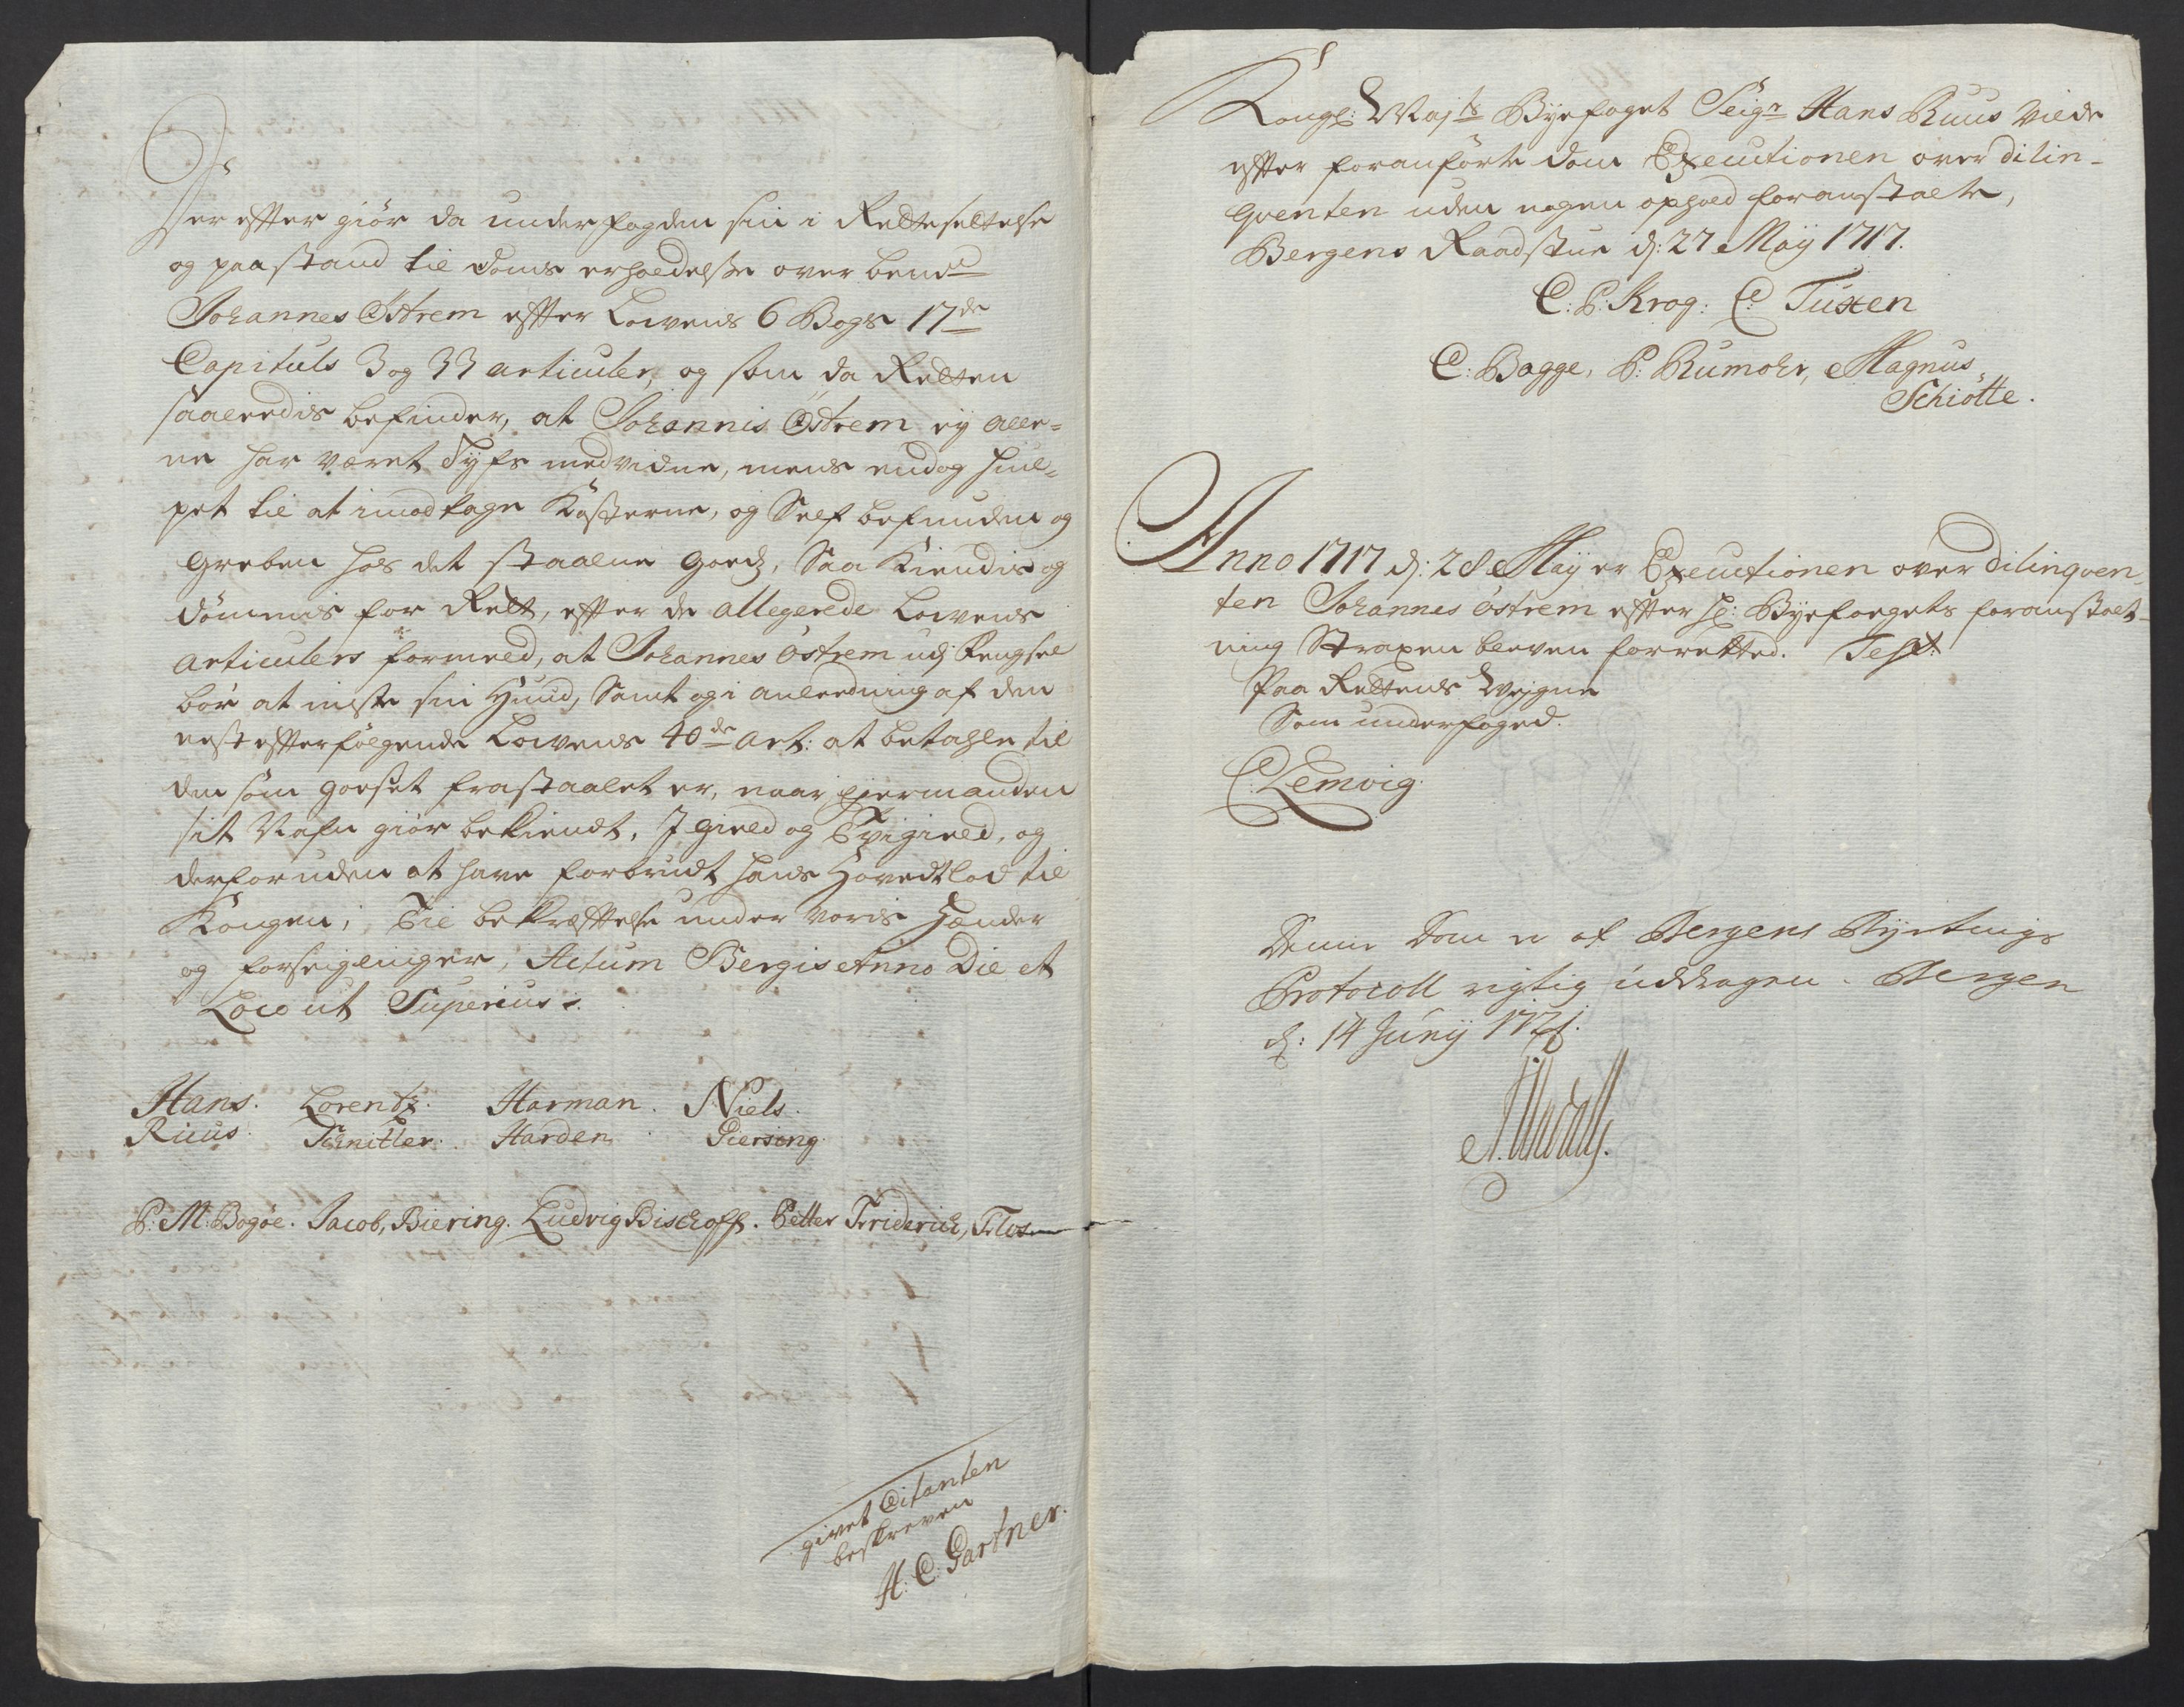 Her effter giör da underfogden sin i Rettesettelse
og paastand til Doms erholdelse over bende
Johannes Östrem effter Lowens 6 Bogs 17de
Capituls 3 og 33 articuler, og som da Retten
saaledis befinder, at Johannis Östrem ey alle-
ne har været Tyfs medvidne, mens endog hiul-
pet til at imodtage Kosterne, og Self befunden og
greben hos det staalne goedz, Saa Kiendis og
dömmis for Rett, effter de allegerede Lowens
articulers formeld, at Johannes Östrem udj Fengsel
bör at miste sin Hund, Samt og i anleedning af den
nest effterfölgende Lowens 40de art: at betahle til
den som godset frastaalet er, naar ejermanden
sit Nafn giör bekiendt, Igield og Tvigield, og
derforuden at have forbrudt hans Hovedtlod til
Kongen; Til bekræfftelse under voris Hænder
og forseiglinger, Actum Bergis Anno Die et
Loco ut Superius.
Hans. Lorentz. Harman. Niels.
Ruus. Schnitler. Harden. Piersong.
P: M: Bogöe. Jacob, Biering. Ludvig Bischoff. Petter Friderich,
givet Citanten
beskreven
H: C: Gartner.
Kongl: Mayts Byefoget Seigr Hans Ruus vilde
effter foranförte dom Executionen over dilin-
qventen uden nogen ophold foranstalte,
Bergens Raadstue d: 27 Maÿ 1717.
C: P: Krog: C: Tuxen
C: Bagge, P: Rumohr, Magnus
Schiötte.
Anno 1717 d: 28 Maÿ er Executionen over dilinqven-
ten Johannes östrem effter Hr: Byefogets foranstalt-
ning Straxen bleven forretted. Test:
Paa Rettens Vegne
Som underfoged.
C: Lemvig.
Denne Dom er af Bergens Byetings
Protocoll rigtig uddragen. Bergen
d: 14 Junÿ 1721.